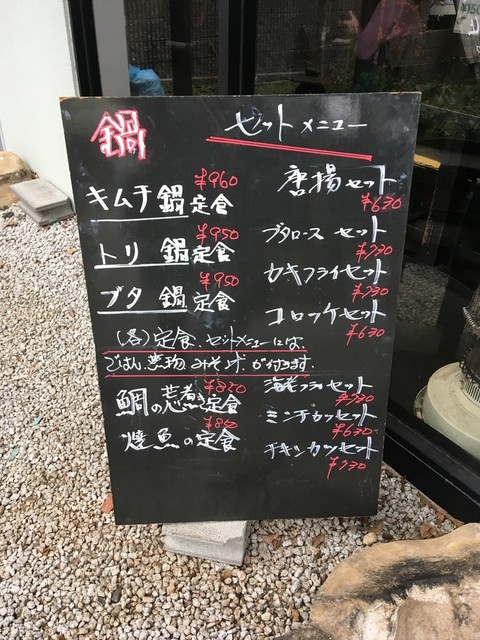 鍋
キムチ鍋定食 ¥960
トリ鍋定食 ¥950
ブタ鍋定食 ¥950
(各)定食、セットメニューには、
ごはん 煮物 みそ汁 が付きます。
鯛の荒煮き定食
焼魚の定食 ¥850
セットメニュー
唐揚セット ¥630
ブタロース セット ¥730
カキフライセット ¥730
コロッケセット ¥630
海老フライセット ¥730
ミンチカツセット ¥630
チキンカツセット ¥730